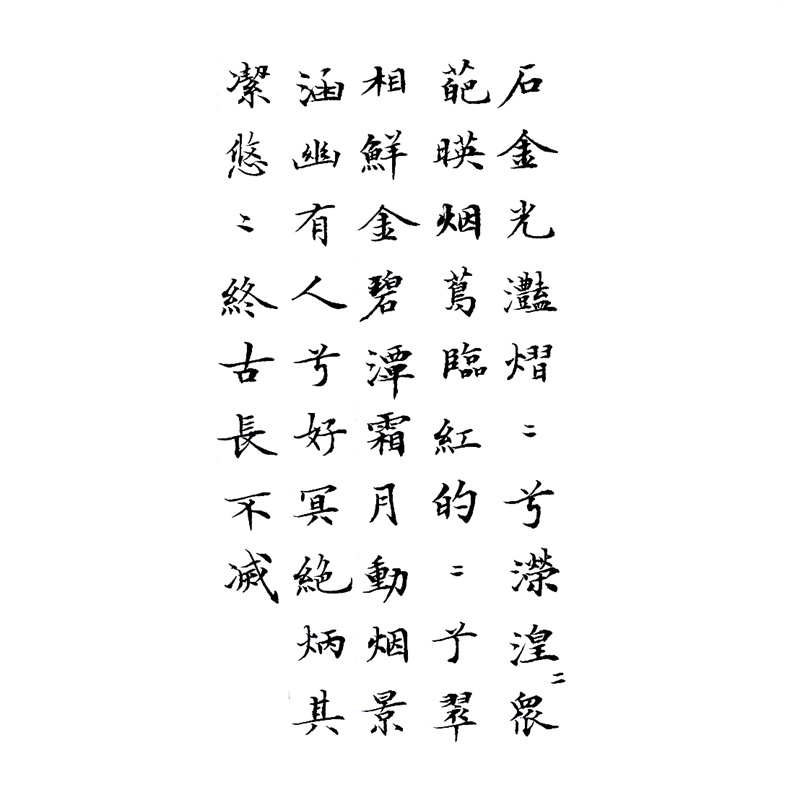 石金光灩熠〻兮濚湟〻衆
葩暎烟蔦臨紅的〻兮翠
相鮮金碧潭霜月動烟景
涵幽有人兮好冥絶炳其
潔悠〻終古長不滅